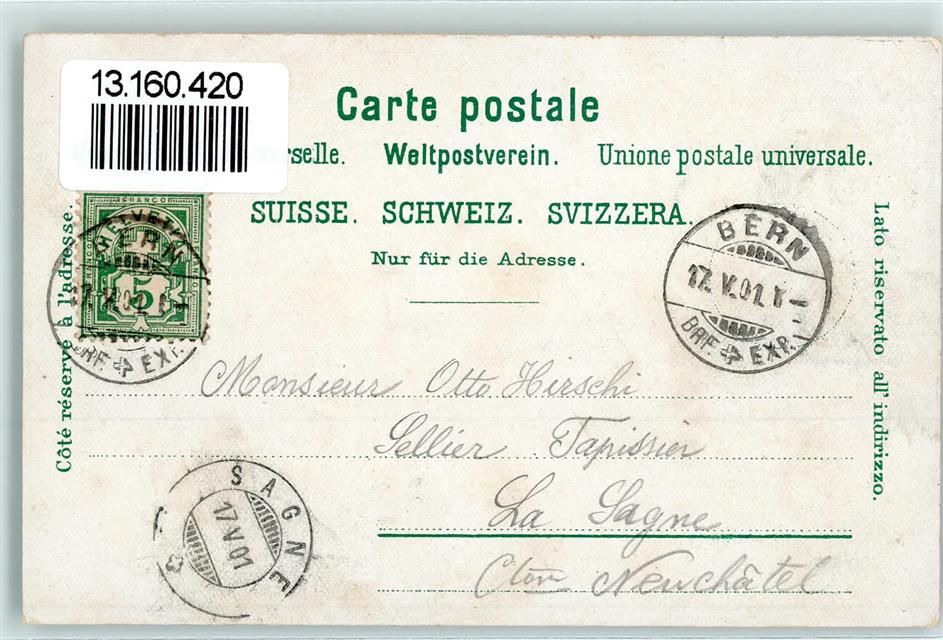 13.160.420
Carte postale
rselle. Weltpostverein. Unione postale universale.
SUISSE. SCHWEIZ. SVIZZERA.
Nur für die Adresse.
Côté réservé à l'adresse.
Lato riservato all' indirizzo.
FRANCO
HELVETIA
5
BERN
17. V. 01. 1-
BRF. EXP.
BERN
17. V. 01. 1-
BRF. EXP.
Monsieur Otto Hirschi
Sellier Tapissier
La Sagne
Cton Neuchâtel
SAGNE
17 V 01